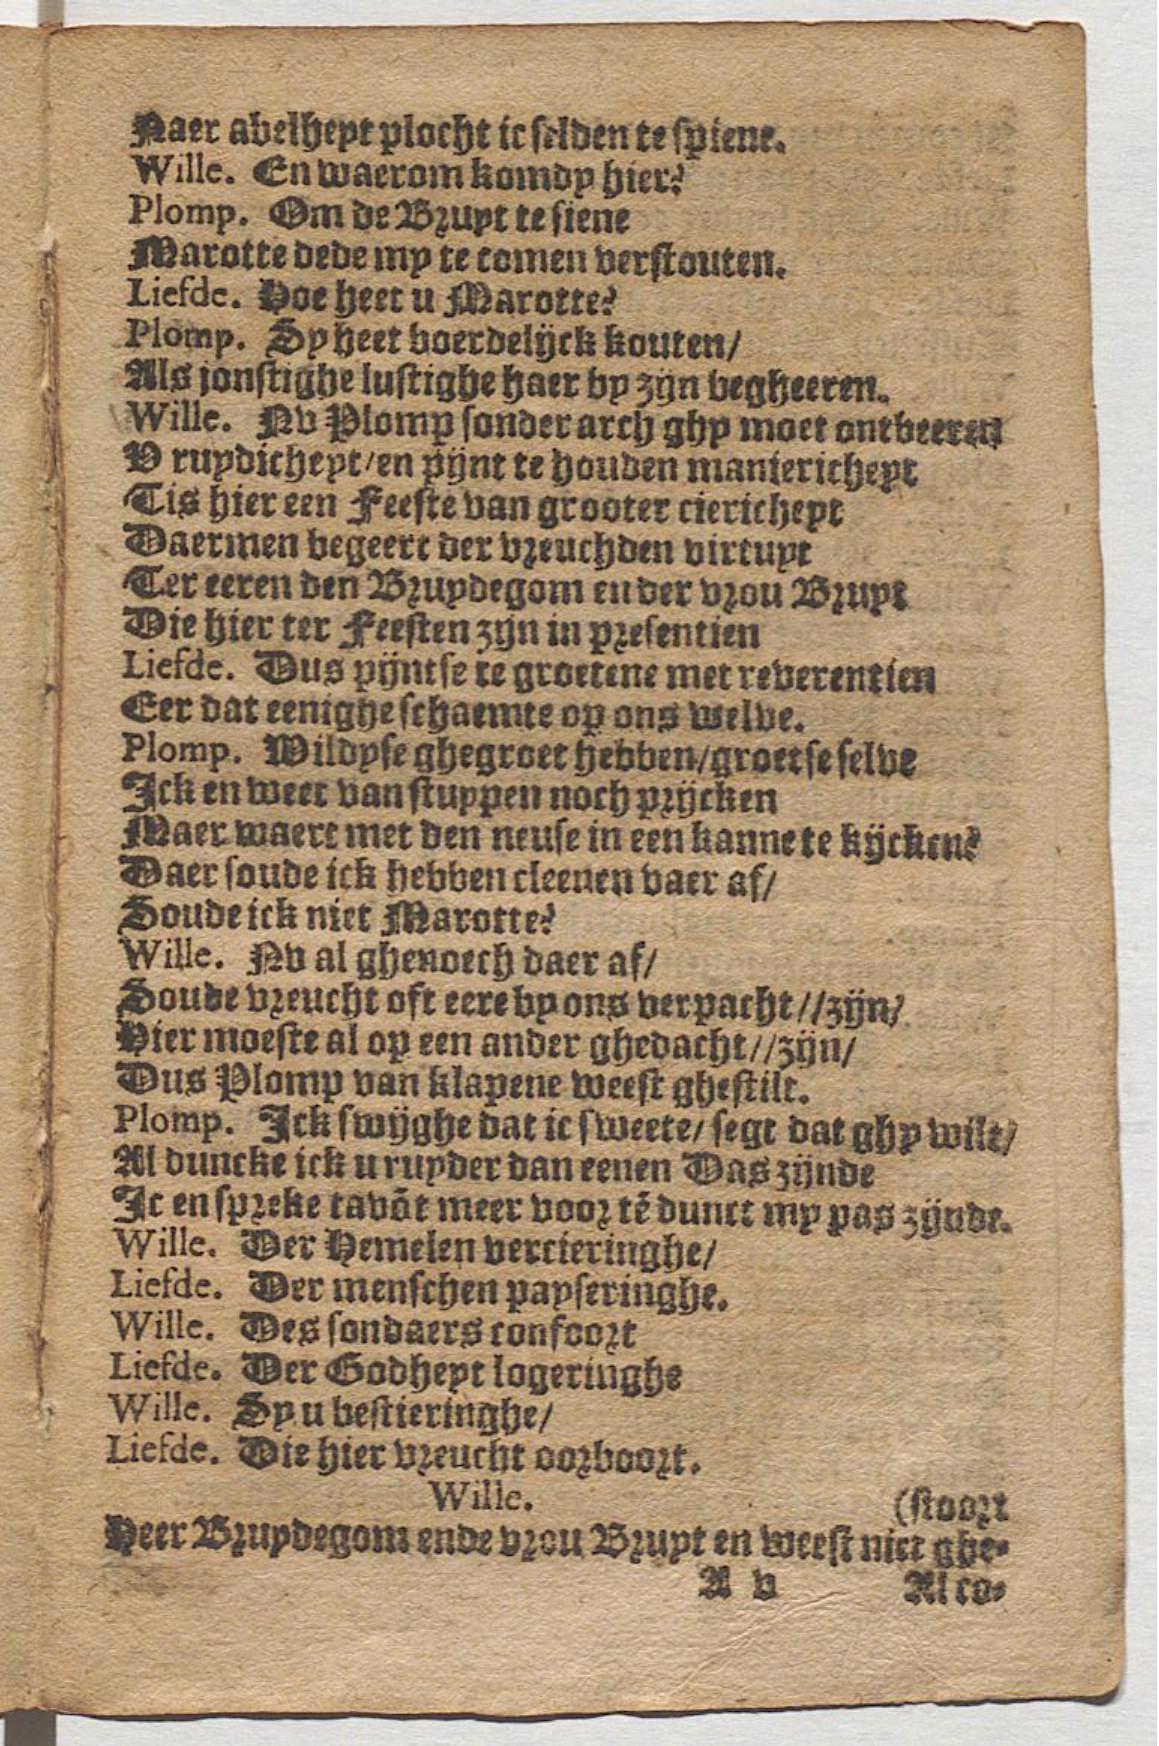 Naer abelheyt plocht ic selden te spiene.
Wille. En waerom komdy hier?
Plomp. Om de Bruyt te siene
Marotte dede my te comen verstouten.
Liefde. Hoe heet u Marotte?
Plomp. Sy heet boerdelijck kouten/
Als jonstighe lustighe haer by zijn begheeren.
Wille. Nv Plomp sonder arch ghy moet ontbeeren
V ruydicheyt/en pijnt te houden maniericheyt
Tis hier een Feeste van grooter ciericheyt
Daermen begeert der vreuchden virtuyt
Ter eeren den Bruydegom en der vrou Bruyt
Die hier ter Feesten zijn in presentien
Liefde. Dus pijntse te groetene met reverentien
Eer dat eenighe schaemte op ons welve.
Plomp. Wildyse ghegroet hebben/groetse selve
Ick en weet van stuypen noch prijcken
Maer waert met den neuse in een kanne te kijcken?
Daer soude ick hebben cleenen vaer af/
Soude ick niet Marotte?
Wille. Nv al ghenoech daer af/
Soude vreucht oft eere by ons verpacht//zijn/
Hier moeste al op een ander ghedacht//zijn/
Dus Plomp van klapene weest ghestilt.
Plomp. Ick swijghe dat ic sweete/ segt dat ghy wilt/
Al duncke ick u ruyder dan eenen Das zijnde
Ic en spreke tavāt meer voor tē dunct my pas zijnde.
Wille. Der Hemelen vercieringhe/
Liefde. Der menschen payseringhe.
Wille. Des sondaers confoort
Liefde. Der Godheyt logeringhe
Wille. Sy u bestieringhe/
Liefde. Die hier vreucht oorboort.
Wille. (stoort
Heer Bruydegom ende vrou Bruyt en weest niet ghe-
A v Al co-